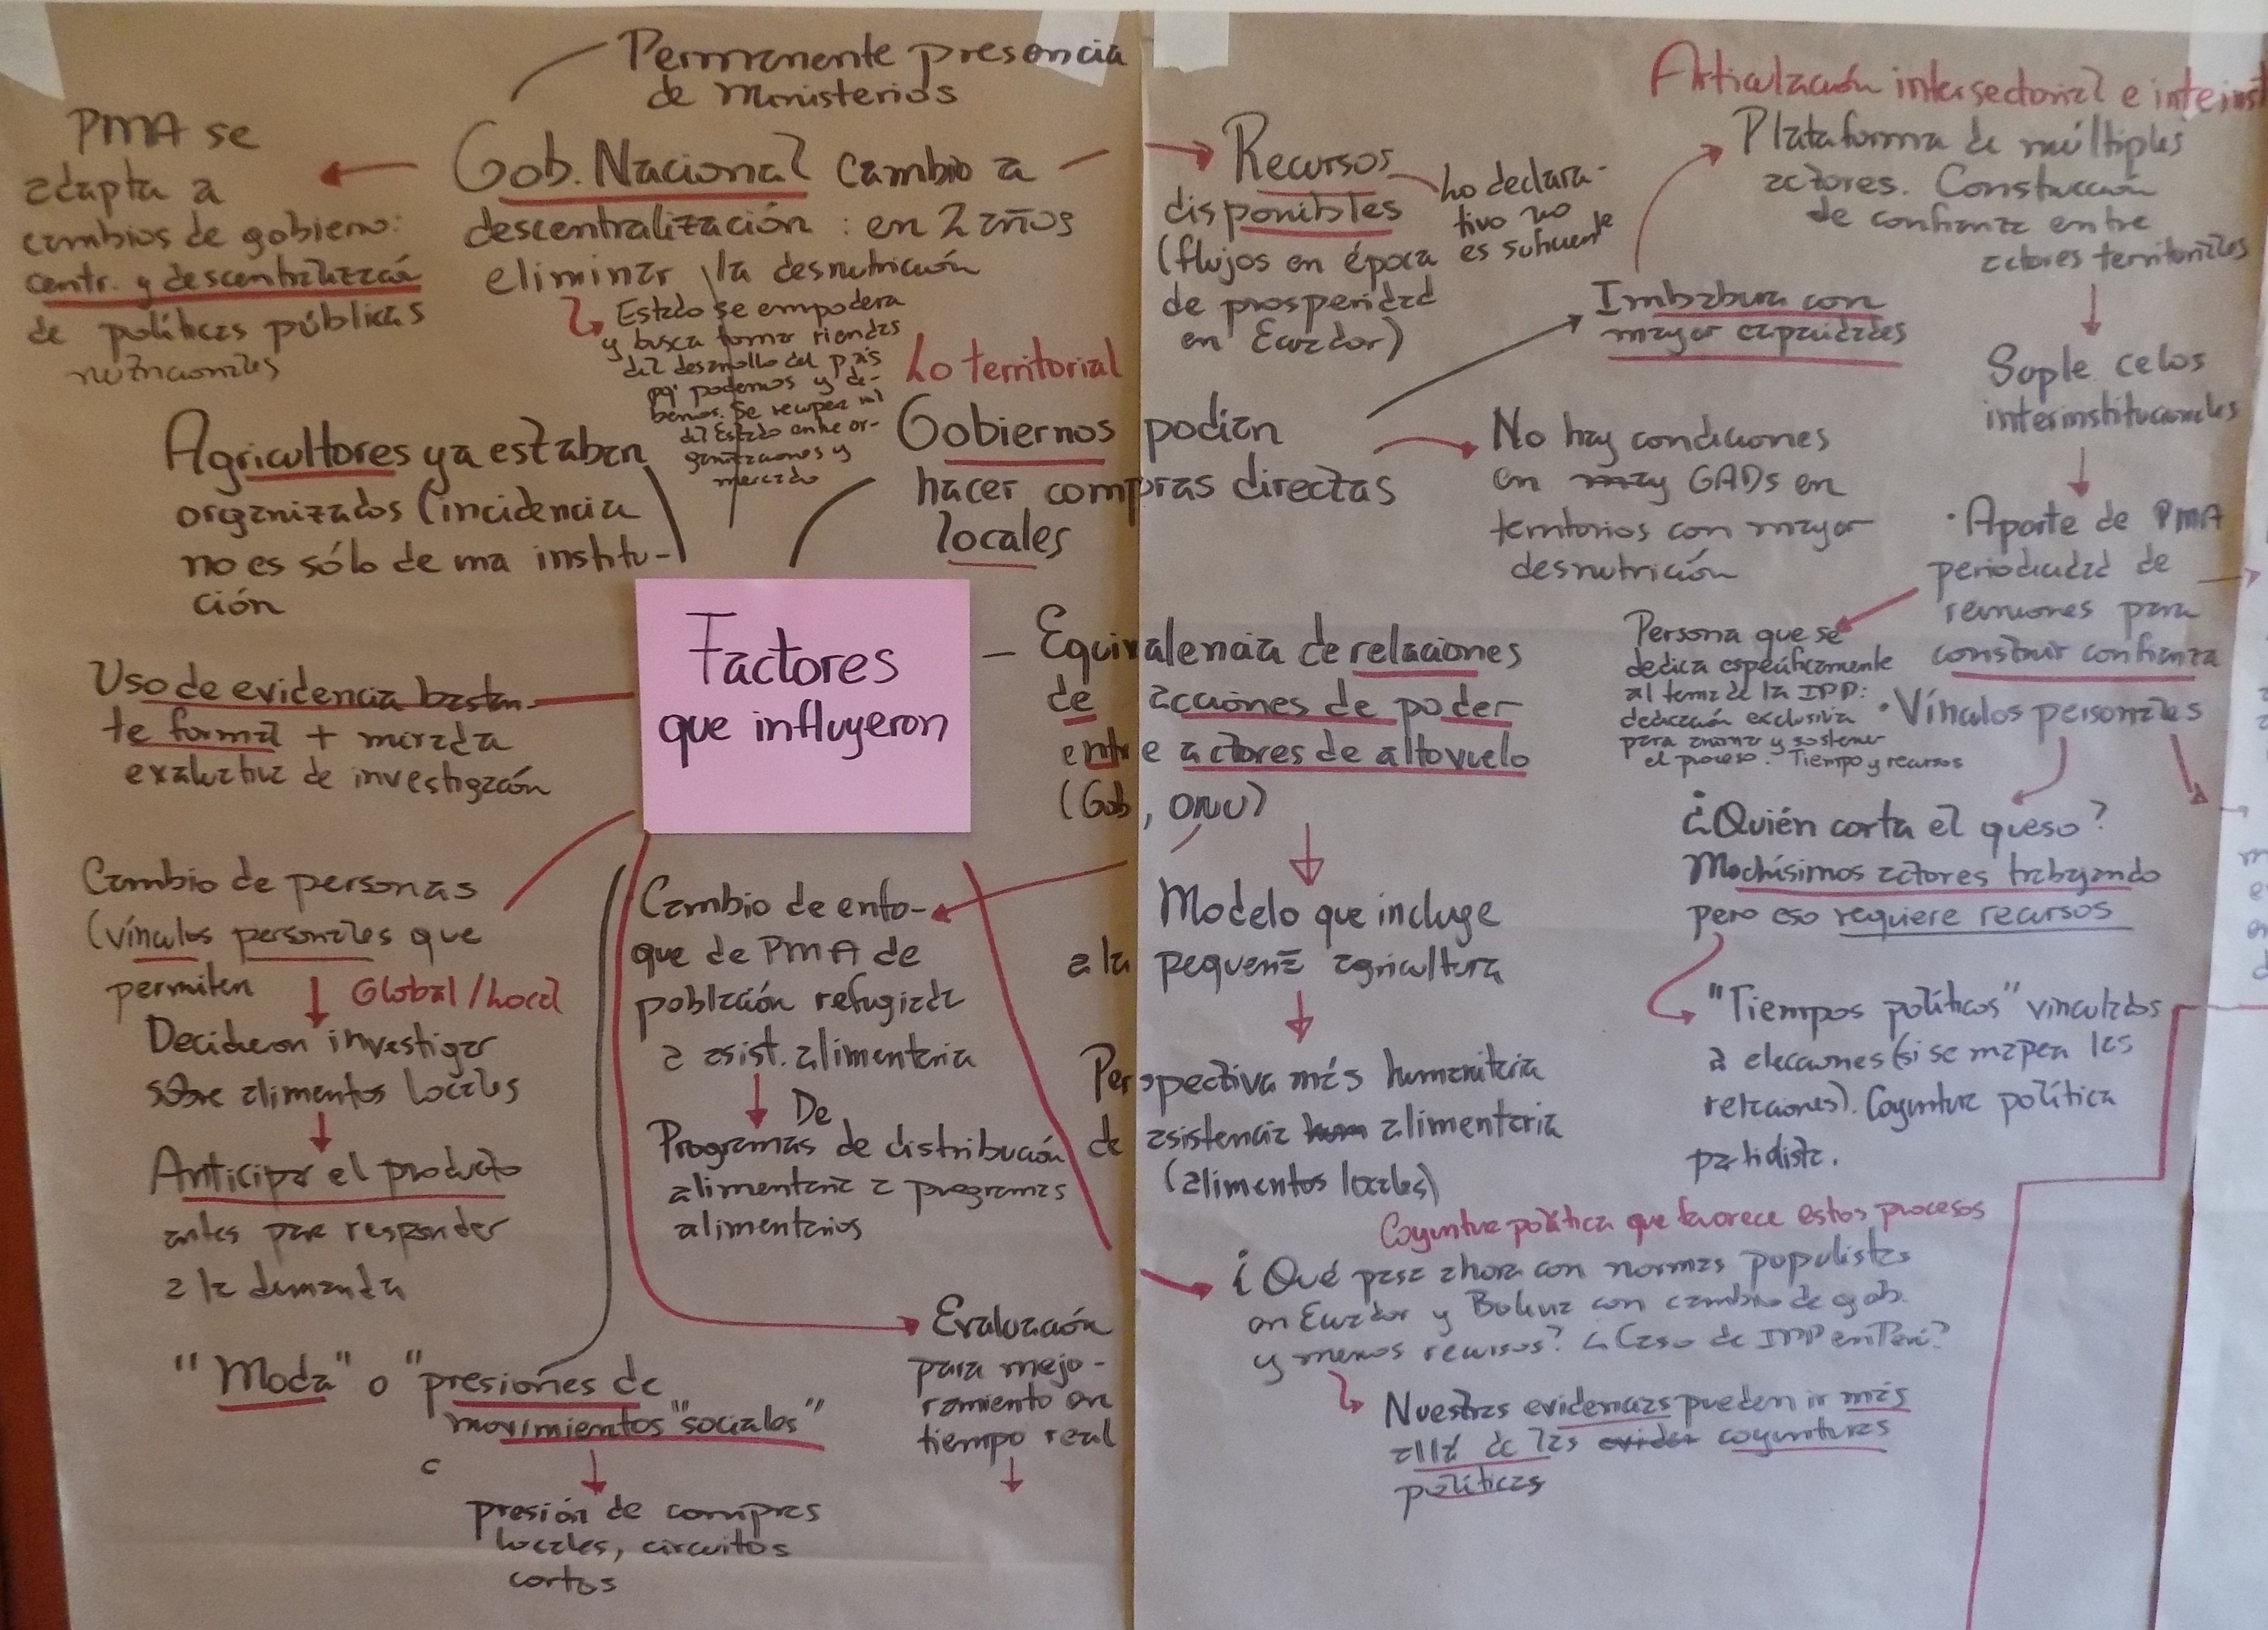 Permanente presencia
de Ministerios
PMA se
adapta a
cambios de gobierno:
centr. y descentralización
de políticas públicas
nutricionales
Gob. Nacional cambio a
descentralización: en 2 años
eliminar la desnutrición
Estado se empodera
y busca tomar riendas
del desarrollo del país
pq' podemos y de-
bemos. Se recupera rol
del Estado entre or-
ganizaciones y
mercado
Recursos
disponibles
(flujos en época
de prosperidad
en Ecuador)
Lo declara-
tivo no
es suficiente
Articulación intersectorial e interinst
Plataforma de múltiples
actores. Construcción
de confianza entre
actores territoriales
Suple celos
interinstitucionales
· Aporte de PMA
periodicidad de
reuniones para
construir confianza
· Vínculos personales
Persona que se
dedica específicamente
al tema de la IPP:
dedicación exclusiva
para animar y sostener
el proceso. Tiempo y recursos
¿Quién corta el queso?
Mochísimos actores trabajando
pero eso requiere recursos
"Tiempos políticos" vinculados
a elecciones (si se mapea las
relaciones). Coyuntura política
partidista.
Agricultores ya estaban
organizados (incidencia
no es sólo de una institu-
ción
Lo territorial
Gobiernos podían
hacer compras directas
locales
Imbabura con
mayor capacidades
No hay condiciones
en muy GADs en
territorios con mayor
desnutrición
Factores
que influyeron
Uso de evidencia bastan-
te formal + mirada
evaluativa de investigación
Equivalencia de relaciones
de acciones de poder
entre actores de alto vuelo
(Gob, ONU)
Modelo que incluye
a la pequeña agricultura
Perspectiva más humanitaria
de asistencia hum alimentaria
(alimentos locales)
Cambio de enfo-
que de PMA de
población refugiada
a asist. alimentaria
De
Programas de distribución
alimentaria a programas
alimentarios
Cambio de personas
(vínculos personales que
permiten
Global / Local
Decidieron investigar
sobre alimentos locales
Anticipar el producto
antes para responder
a la demanda
"Moda" o "presiones de
movimientos "sociales"
c
presión de compras
locales, circuitos
cortos
Evaluación
para mejo-
ramiento en
tiempo real
Coyuntura política que favorece estos procesos
¿Qué pasa ahora con normas populistas
en Ecuador y Bolivia con cambio de gob.
y menos recursos? ¿Caso de IPP en Perú?
Nuestras evidencias pueden ir más
allá de las eviden coyunturas
políticas